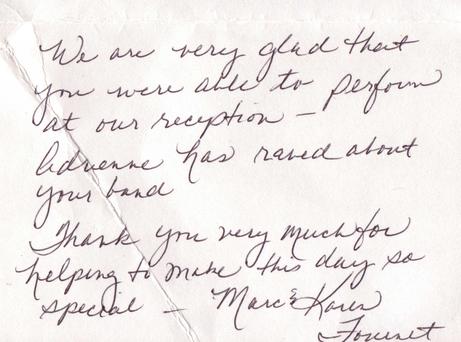 We are very glad that
you were able to perform
at our reception –
Adrienne has raved about
your band
Thank you very much for
helping to make this day so
special – Marc & Karen